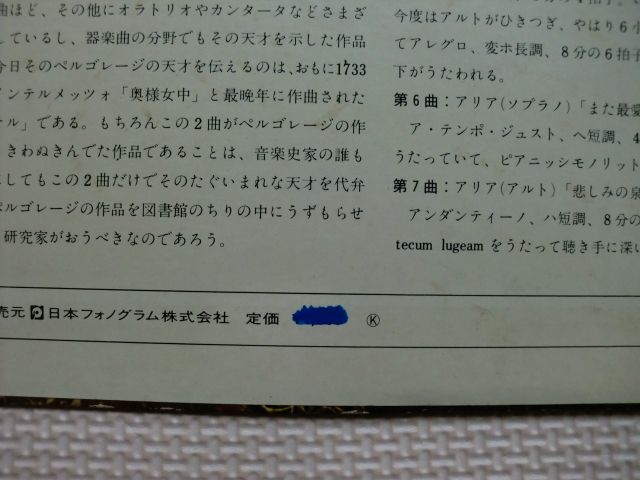 曲ほど、その他にオラトリオやカンタータなどさまざ
しているし、器楽曲の分野でもその天才を示した作品
今日そのペルゴレージの天才を伝えるのは、おもに1733
インテルメッツォ「奥様女中」と最晩年に作曲された
ール」である。もちろんこの2曲がペルゴレージの作
きわぬきんでた作品であることは、音楽史家の誰も
してもこの2曲だけでそのたぐいまれな天才を代弁
ペルゴレージの作品を図書館のちりの中にうずもらせ
研究家がおうべきなのであろう。
今度はアルトがひきつぎ、やはり6小
てアレグロ、変ホ長調、8分の6拍子
下がうたわれる。
第6曲：アリア(ソプラノ)「また最愛
ア・テンポ・ジュスト、ヘ短調、4
うたっていて、ピアニッシモノリット
第7曲：アリア(アルト)「悲しみの泉
アンダンティーノ、ハ短調、8分の
tecum lugeam をうたって聴き手に深い
売元 日本フォノグラム株式会社 定価 Ⓚ